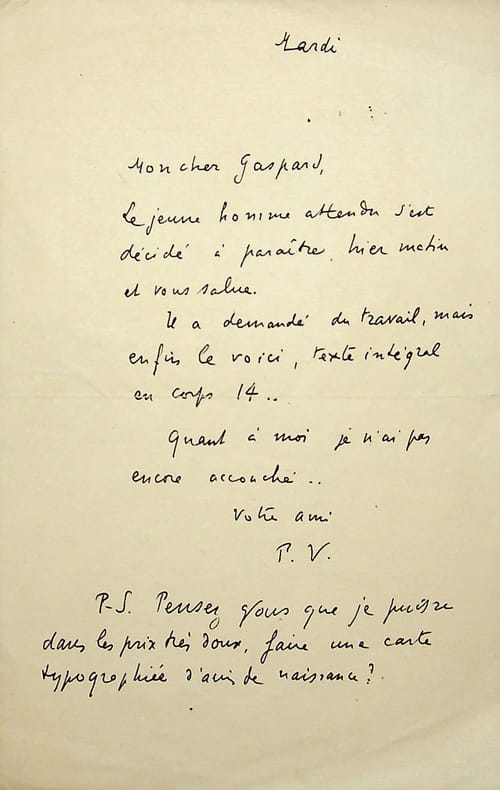 Mardi
Mon cher Gaspard,
Le jeune homme attendu s'est
décidé à paraître hier matin
et vous salue.
Il a demandé du travail, mais
enfin le voici, texte intégral
en corps 14..
Quant à moi je n'ai pas
encore accouché..
Votre ami
P. V.
P-S. Pensez vous que je puisse
dans les prix très doux, faire une carte
typographiée d'avis de naissance?